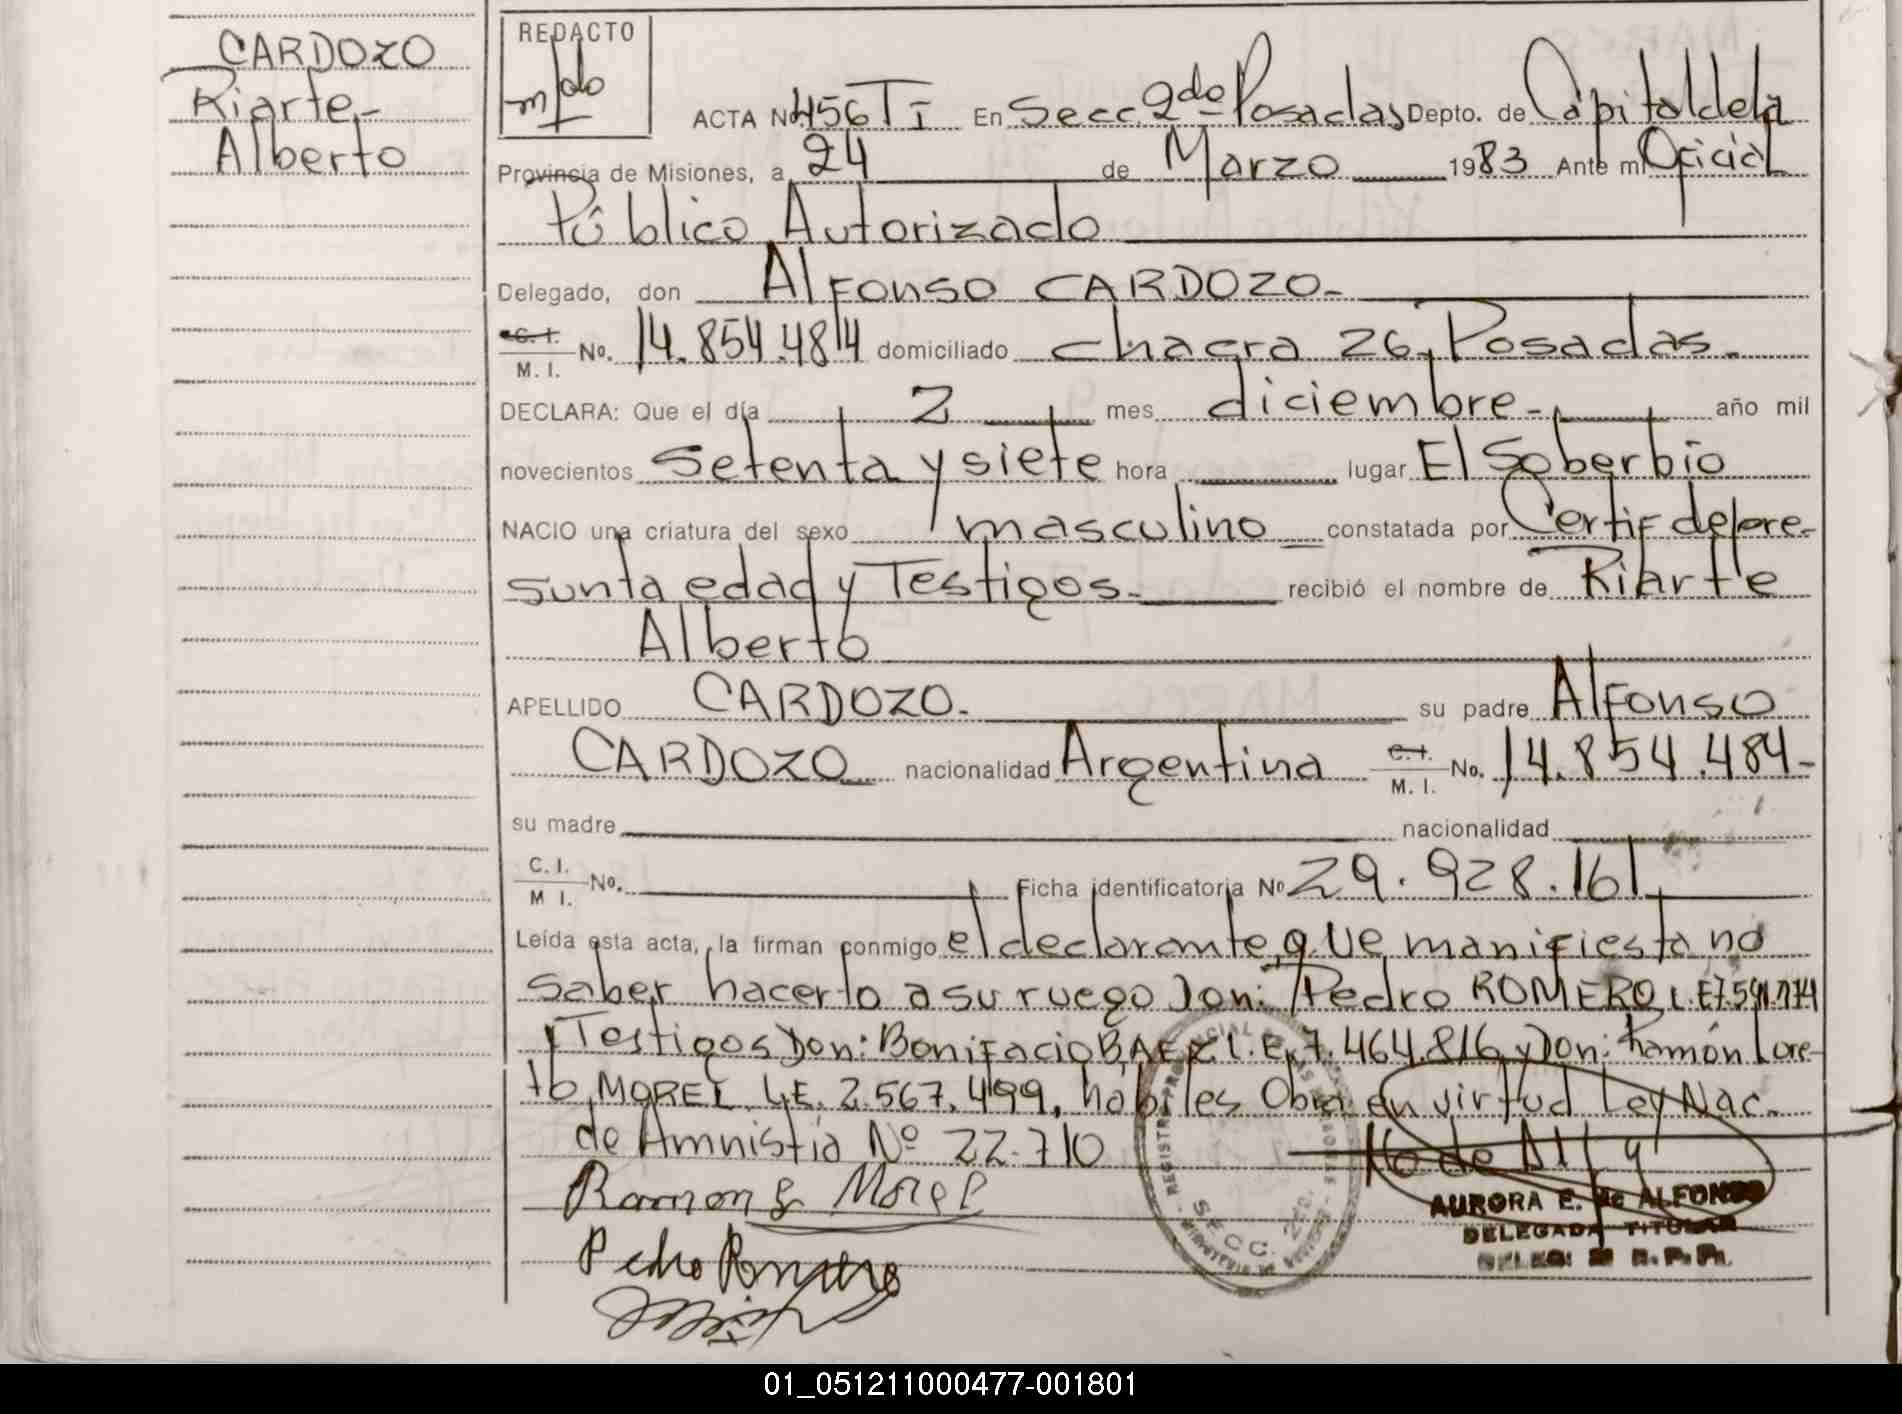 CARDOZO
Riarte-
Alberto
REDACTO
ACTA No. 456 T I En Secc. 2do Posadas Depto. de Capital de la
Provincia de Misiones, a 24 de Marzo 1983 Ante mi Oficial
Público Autorizado
Delegado, don Alfonso CARDOZO-
C. I.
M. I. No. 14.854.484 domiciliado chacra 26, Posadas.
DECLARA: Que el día 2 mes diciembre- año mil
novecientos setenta y siete hora lugar El Soberbio
NACIO una criatura del sexo masculino constatada por Certif de pre-
sunta edad y Testigos- recibió el nombre de Riarte
Alberto
APELLIDO CARDOZO- su padre Alfonso
CARDOZO nacionalidad Argentina C. I.
M. I. No. 14.854.484-
su madre nacionalidad
C. I.
M I. No. Ficha identificatoria No 29.928.161
Leída esta acta, la firman conmigo el declarante que manifiesta no
saber hacerlo a su ruego Don: Pedro ROMERO L.E
y Testigos Don: Bonifacio BAEZ L.E. 7.464.816 y Don: Ramón Lore-
to MOREL L.E. 2.567.499, habiles Obra en virtud Ley Nac.
de Amnistía No 22.710
Ramon L Morel
Pedro Romero
REGISTRO PROVINCIAL DE LAS PERSONAS
SECC. 2da.
AURORA E. de ALFONSO
DELEGADA TITULAR
01_051211000477-001801